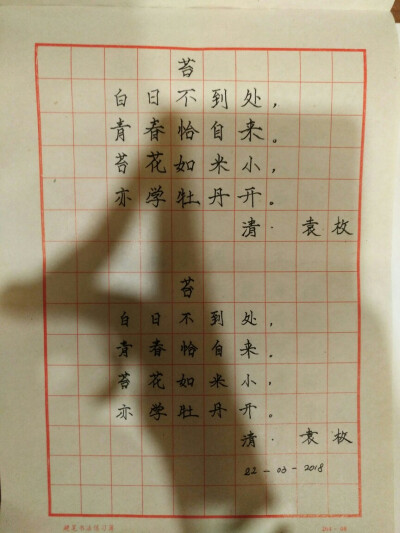 苔
白日不到处，
青春恰自来。
苔花如米小，
亦学牡丹开。
清·袁枚
苔
白日不到处，
青春恰自来。
苔花如米小，
亦学牡丹开。
清·袁枚
22-03-2018